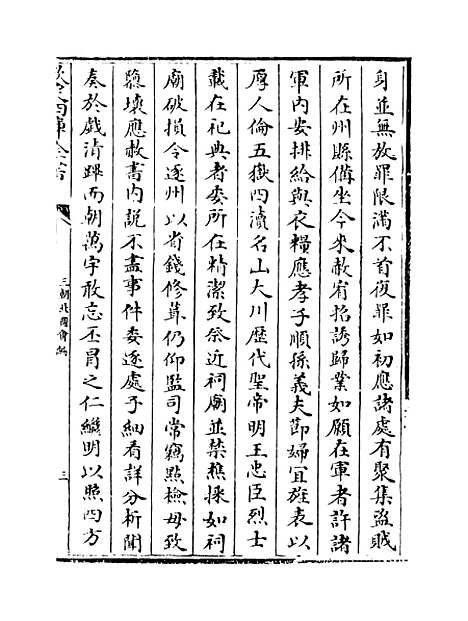 身並無放罪限滿不首復罪如初應諸處有聚集盜賊
所在州縣備坐今來赦宥招誘歸業如願在軍者許諸
軍內安排給與衣糧應孝子順孫義夫節婦宜旌表以
厚人倫五嶽四瀆名山大川歷代聖帝明王忠臣烈士
載在祀典者委所在精潔致祭近祠廟並禁樵採如祠
廟破損令逐州以省錢修葺仍仰監司常竊點檢毋致
隳壞應赦書內説不盡事件委逐處子細看詳分析聞
奏於戲清蹕而朝萬宇敢忘丕冒之仁繼明以照四方
欽定四庫全書
三朝北盟會編
三